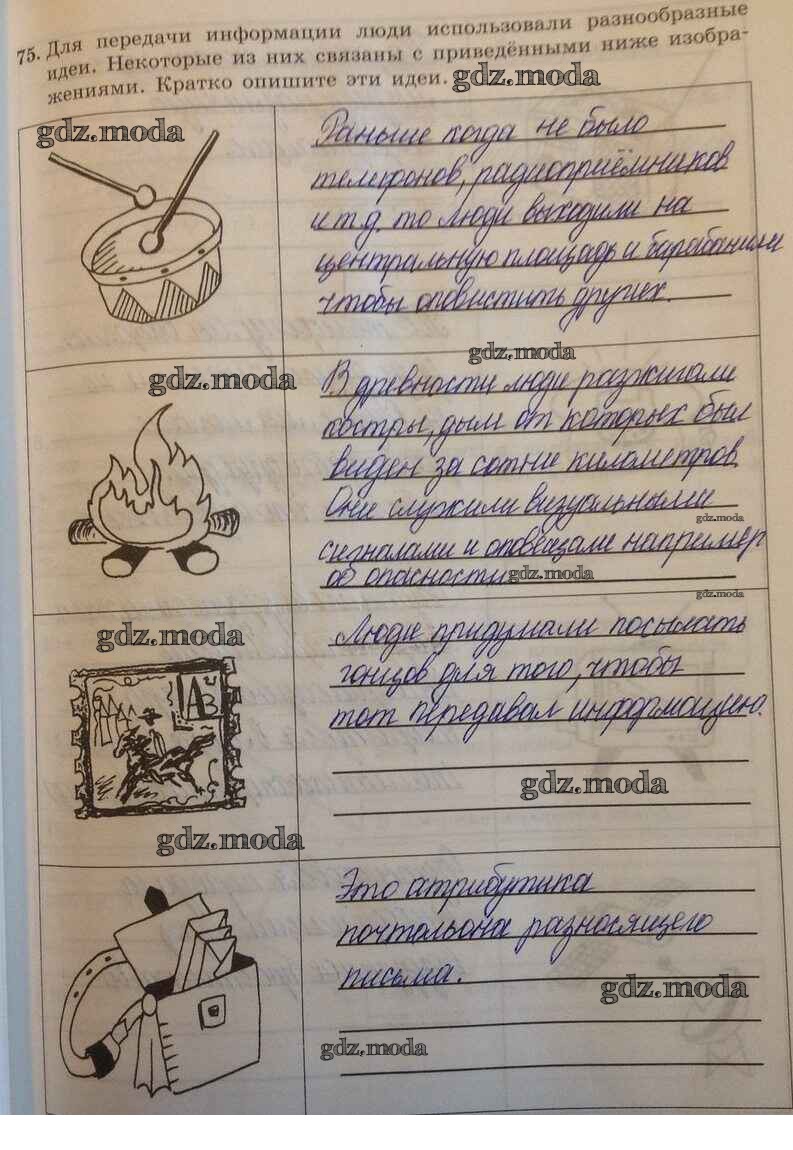 75. Для передачи информации люди использовали разнообразные
идеи. Некоторые из них связаны с приведёнными ниже изобра-
жениями. Кратко опишите эти идеи.
gdz.moda
gdz.moda
Раньше когда не было
телефонов, радиоприёмников
и т.д. то люди выходили на
центральную площадь и барабанили
чтобы оповистить других.
gdz.moda
gdz.moda
В древности люди разжигали
костры, дым от которых был
виден за сотни километров.
Они служили визуальными
gdz.moda
сигналами и оповещали например
об опасности
gdz.moda
gdz.moda
gdz.moda
Люди придумали посылать
гонцов для того, чтобы
тот передавал информацию.
АЗ
gdz.moda
gdz.moda
Это атрибутика
почтальона разносящего
письма.
gdz.moda
gdz.moda